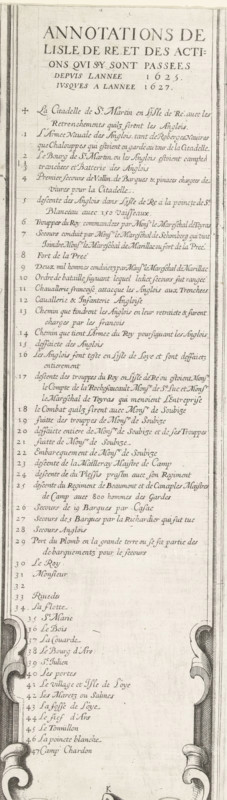 ANNOTATIONS DE
LISLE DE RE ET DES ACTI-
ONS QVI SY SONT PASSEES
DEPVIS LANNEE 1625.
IVSQVES A LANNEE 1627.
+ La Citadelle de St Martin en Lisle de Re avec les
Retrenchements quilz firent les Anglois
1 L'Armee Navale des Anglois tant de Roberges Navires
que Chalouppes qui estoient en garde autour de la Citadelle
2 Le Bourg de St Martin ou les Anglois estoient campés
3 tranchees et batterie des Anglois
4 Premier secours de Vallin de Barques et pinaces chargees de
Vivres pour la Citadelle
5 descente des Anglois dans Lisle de Re a la pointe de St
Blanceau avec 150 Vaisseaux
6 Trouppes du Roy commandees par Monsr le Mareschal de Toyras
7 Secours conduit par Monsr le Mareschal de Schomberg qui vint
Joindre Monsr le Mareschal de Marillac au fort de la Preé
8 Fort de la Preé
9 Deux mil hommes conduits par Monsr le Mareschal de Marillac
10 Ordre de bataille suyvant lequel lesdict secours fut rangee
11 Chavallerie françoise attacque les Anglois aux Trenchees
12 Cavallerie et Infanterie Angloise
13 Chemin que tindrent les Anglois en leur retraicte et furent
chargés par les françois
14 Chemin que tient L'Armee du Roy poursuyvant les Anglois
15 deffaicte des Anglois
16 Les Anglois font teste en Lisle de Loye et sont deffaictz
entierement
17 descente des trouppes du Roy en Lisle de Re ou estoient Monsr
le Compte de la Rochefaucault Monsr de St Luc et Monsr
le Mareschal de Toyras qui menoient L'entreprise
18 le Combat quilz firent avec Monsr de Soubize
19 fuitte des trouppes de Monsr de Soubize
20 deffaicte entiere de Monsr de Soubize et de ses Trouppes
21 fuitte de Monsr de Soubize
22 Embarquement de Monsr de Soubize
23 descente de la Meilleray Maistre de Camp
24 descente de du Plessis praslin avec son Regiment
25 descente du Regiment de Beaumont et de Canaples Maistres
de Camp avec 800 hommes des Gardes
26 Secours de 19 Barques par Casac
27 Secours de 3 Barques par la Richardier qui fut tue
28 Secours Anglois
29 Port du Plomb en la grande terre ou se fit partie des
debarquements pour le secours
30 Le Roy
31 Monsieur
32
33 Rivedu
34 La flotte
35 St Marie
36 Le Bois
37 La Couarde
38 Le Bourg d'Ars
39 St Iulien
40 Les portes
41 Le village et Isle de Loye
42 Les Maretz ou Salines
43 La fosse de Loye
44 Le fief d'Ars
45 Le Tomillon
46 La pointe blanche
47 Camp Chardon
K